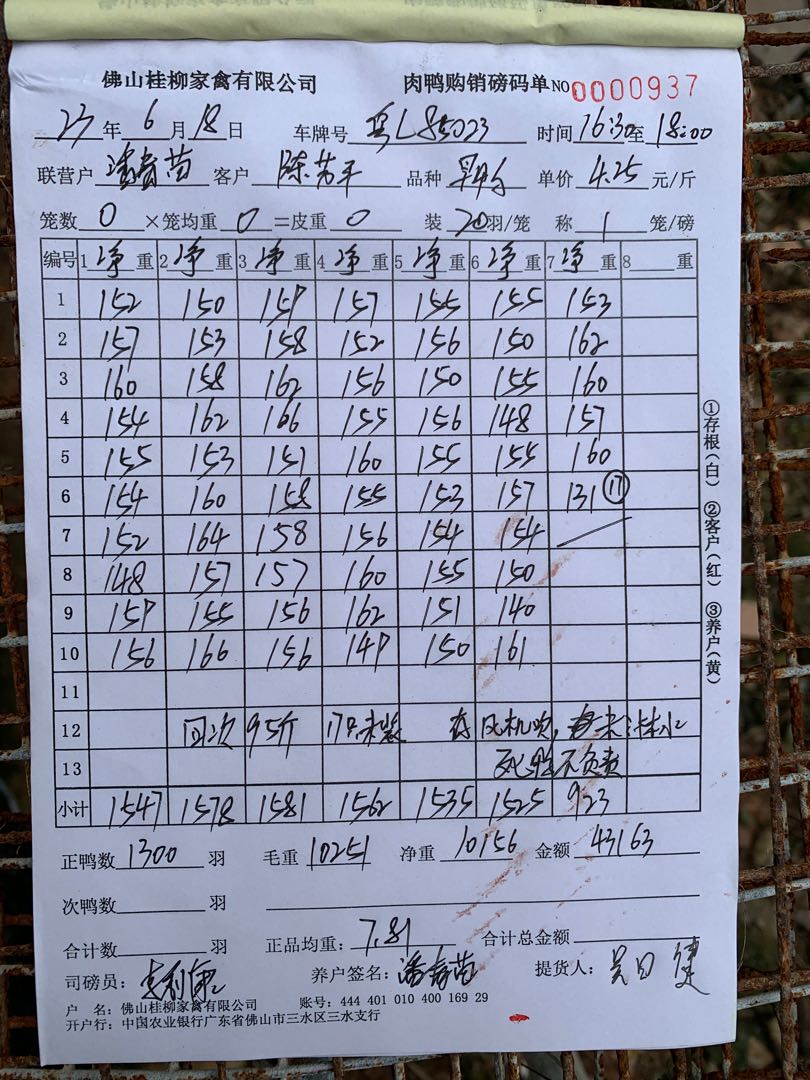 佛山桂柳家禽有限公司 肉鸭购销磅码单 NO 0000937
23 年 6 月 18 日 车牌号 粤L85023 时间 16:30 至 18:00
联营户 潘春苗 客户 陈芳平 品种 单价 4.25 元/斤
笼数 0 ×笼均重 0 =皮重 0 装 20 羽/笼 称 1 笼/磅
编号 1 净 重 2 净 重 3 净 重 4 净 重 5 净 重 6 净 重 7 净 重 8 重
1 152 150 159 157 155 155 153
2 157 153 158 152 156 150 162
3 160 158 162 156 150 155 160
4 154 162 166 155 156 148 157
5 155 153 151 160 155 155 160
6 154 160 158 155 153 157 131 17
7 152 164 158 156 154 154
8 148 157 157 160 155 150
9 159 155 156 162 151 140
10 156 166 156 149 150 161
11
12 回次 95斤 17只未装 有风机吹,
13 死 不负责
小计 1547 1578 1581 1562 1535 1525 923
正鸭数 1300 羽 毛重 10251 净重 10156 金额 43163
次鸭数 羽
合计数 羽 正品均重: 7.81 合计总金额
司磅员: 养户签名: 潘春苗 提货人: 吴日健
户 名: 佛山桂柳家禽有限公司 账号: 444 401 010 400 169 29
开户行: 中国农业银行广东省佛山市三水区三水支行
①存根(白) ②客户(红) ③养户(黄)